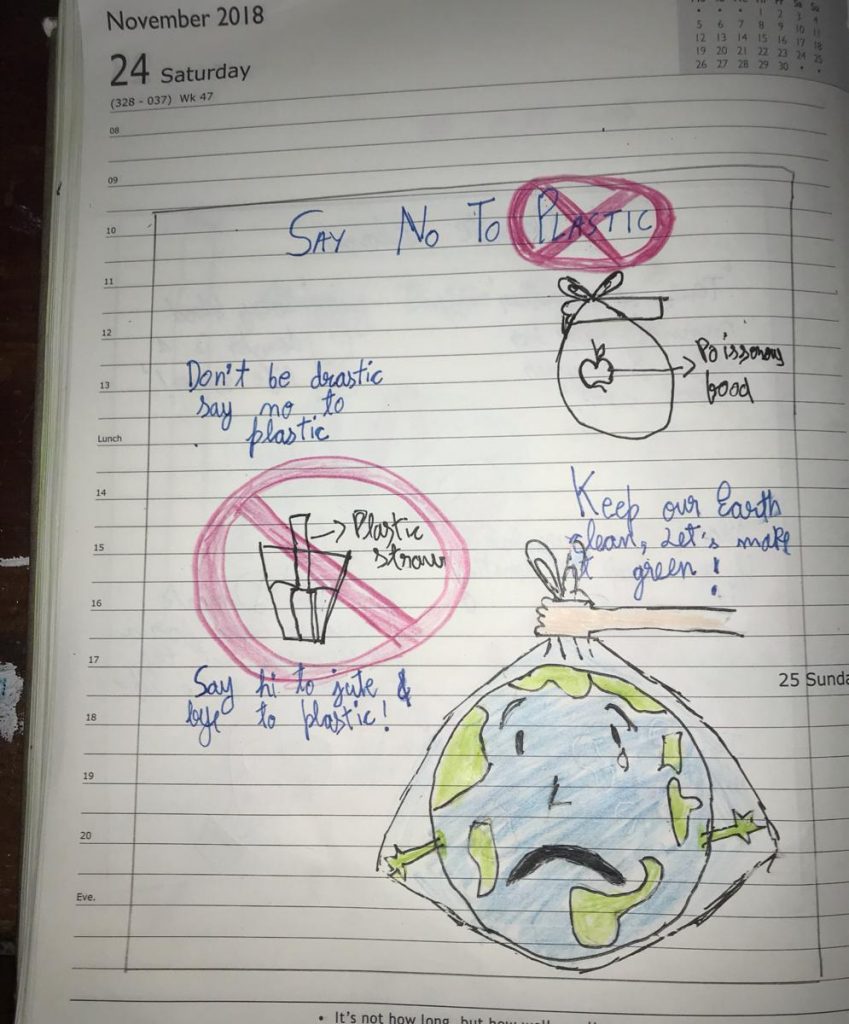 November 2018
24 Saturday
(328 - 037) Wk 47
5 6 7 8 9 10 11
12 13 14 15 16 17 18
19 20 21 22 23 24 25
26 27 28 29 30
08
09
10
SAY NO TO PLASTIC
11
12
Poissonous
food
Don't be drastic
13
say no to
plastic
Lunch
14
Keep our Earth
clean, Let's make
it green!
Plastic
straw
15
16
17
25 Sunda
Say hi to jute &
bye to plastic!
18
19
20
Eve.
• It's not how long, but how